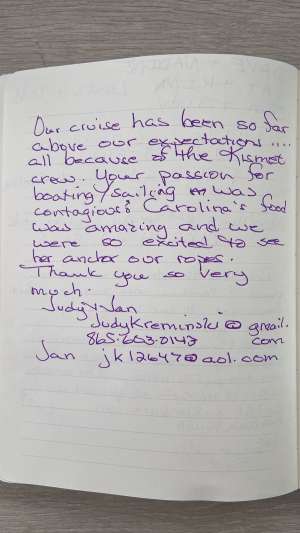 Our cruise has been so far
above our expectations ....
all because of the Kismet
crew. Your passion for
boating/sailing was
contagious! Carolina's food
was amazing and we
were so excited to see
her anchor our ropes.
Thank you so very
much.
Judy & Jan
Judykreminski@gmail.
865.603.0142 com
Jan jk12647@aol.com